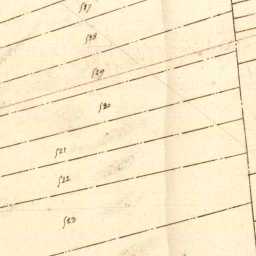 517
518
519
520
521
522
523